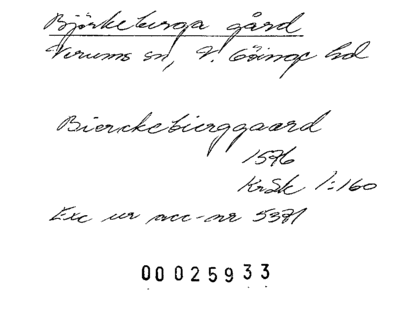 Björkeberga gård
Verums sn, V. Göinge hd
Bierckebierggaard
1576
KrSk 1:160
Exc ur acc-nr 5371
00025933